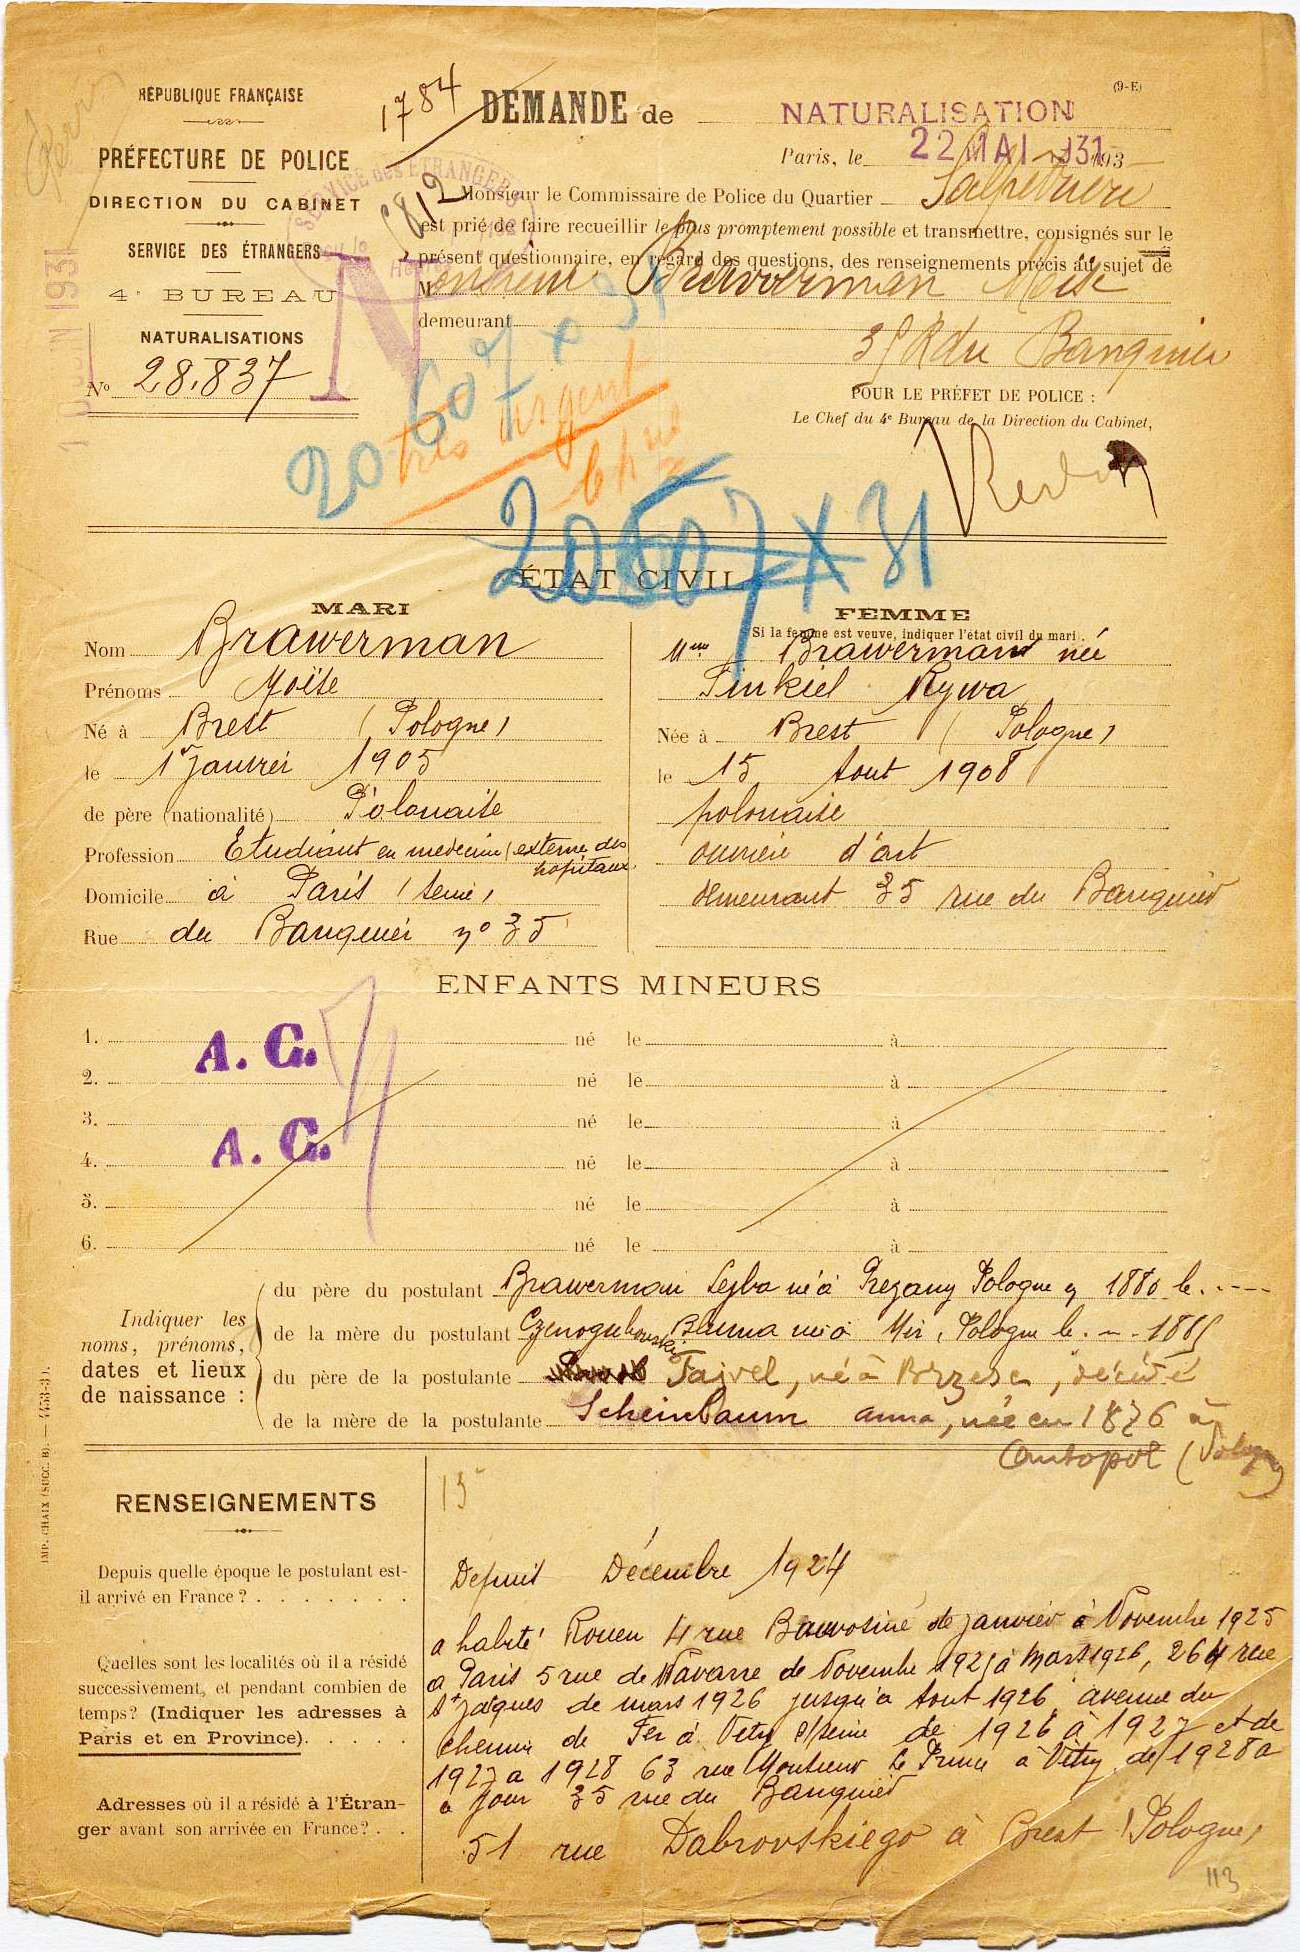 (9-E)
RÉPUBLIQUE FRANÇAISE
PRÉFECTURE DE POLICE
DIRECTION DU CABINET
SERVICE DES ÉTRANGERS
4e BUREAU
NATURALISATIONS
No 28.837
1784
DEMANDE de NATURALISATION
Paris, le 22 MAI 1931 193
Monsieur le Commissaire de Police du Quartier Salpêtrière
est prié de faire recueillir le plus promptement possible et transmettre, consignés sur le
présent questionnaire, en regard des questions, des renseignements précis au sujet de
Monsieur Brawerman Moïse
demeurant
35 R du Banquier
POUR LE PRÉFET DE POLICE :
Le Chef du 4e Bureau de la Direction du Cabinet,
SERVICE des ETRANGERS
N
20607 x 31
très urgent
20607 X 31
ÉTAT CIVIL
MARI
Nom Brawerman
Prénoms Moïse
Né à Brest (Pologne)
le 1er Janvier 1905
de père (nationalité) Polonaise
Profession Etudiant en médecine (externe des hôpitaux
Domicile à Paris (Seine)
Rue du Banquier no 35
FEMME
Si la femme est veuve, indiquer l'état civil du mari.
Mme Brawerman née
Finkiel Rywa
Née à Brest (Pologne)
le 15 Aout 1908
polonaise
ouvrière d'art
demeurant 35 rue du Banquier
ENFANTS MINEURS
1. né le à
2. né le à
3. né le à
4. né le à
5. né le à
6. né le à
A. G.
A. G.
Indiquer les noms, prénoms, dates et lieux de naissance :
du père du postulant Brawerman Lejba né à Pregany Pologne 1880 le
de la mère du postulant Bluma née à Mir, Pologne le 1885
du père de la postulante Fajvel, né à décédé
de la mère de la postulante Scheinbaum anna, née en 1876 à
Antopol (Pologne)
IMP. CHAIX (SUCC. B). — 4453-31.
RENSEIGNEMENTS
15
Depuis quelle époque le postulant est-
il arrivé en France ?
Depuis Décembre 1924
Quelles sont les localités où il a résidé
successivement, et pendant combien de
temps? (Indiquer les adresses à
Paris et en Province).
a habité Rouen 4 rue de janvier à Novembre 1925
a Paris 5 rue de Navarre de Novembre 1925 à Mars 1926, 264 rue
St Jaques de mars 1926 jusqu'a Aout 1926 avenue du
chemin de Fer à Vitry s/seine de 1926 à 1927 et de
1927 a 1928 63 rue Monsieur le Prince à Vitry de 1928 a
ce jour 35 rue du Banquier
Adresses où il a résidé à l'Étran-
ger avant son arrivée en France?
51 rue Dabrovskiego à Brest (Pologne)
113